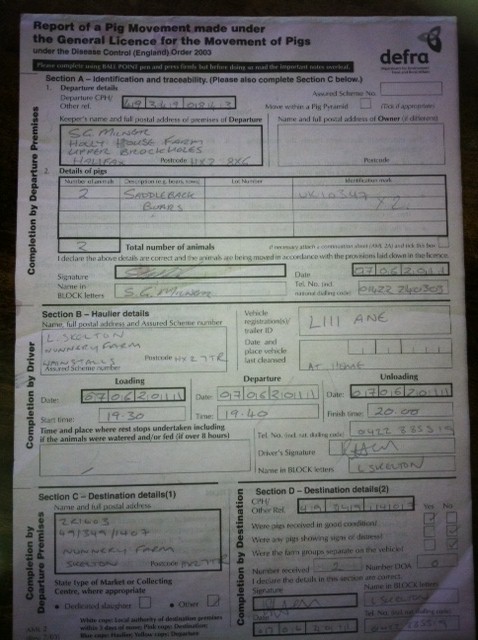 Report of a Pig Movement made under
the General Licence for the Movement of Pigs
under the Disease Control (England) Order 2003
defra
Please complete using BALL POINT pen and press firmly but before doing so read the important notes overleaf.
Section A – Identification and traceability. (Please also complete Section C below.)
1. Departure details
Assured Scheme No.
Departure CPH/
Other ref.
Move within a Pig Pyramid
(Tick if appropriate)
Keeper's name and full postal address of premises of Departure
Name and full postal address of Owner (if different)
S.G. MILNER
HOLLY HOUSE FARM
UPPER BROCKHOLES
HALIFAX
Postcode HX2 8XG
Postcode
2. Details of pigs
Number of animals
Description (e.g. boars, sows)
Lot Number
Identification mark
2
SADDLEBACK
BOARS
X 2
2
Total number of animals
I declare the above details are correct and the animals are being moved in accordance with the provisions laid down in the licence.
Signature
Date
07 06 2011
Name in
BLOCK letters
S.G. MILNER
Tel. No. (incl.
national dialling code)
01422 240303
Completion by Departure Premises
Section B – Haulier details
Name, full postal address and Assured Scheme number
L. SKELTON
NUNNERY FARM
WAINSTALLS
Postcode HX2 7TR
Assured Scheme number
Vehicle
registration(s)/
trailer ID
L111 ANE
Date and
place vehicle
last cleansed
AT HOME
Loading
Departure
Unloading
Date: 07 06 2011
Date: 07 06 2011
Date: 07 06 2011
Start time: 19.30
Time: 19.40
Finish time: 20.00
Time and place where rest stops undertaken including
if the animals were watered and/or fed (if over 8 hours)
Tel. No. (incl. nat. dialling code)
Driver's Signature
Name in BLOCK letters
L. SKELTON
Completion by Driver
Section C – Destination details(1)
Name and full postal address
NUNNERY FARM
SKELTON
Postcode HX2 7TR
State Type of Market or Collecting
Centre, where appropriate
Dedicated slaughter
Other
White copy: Local authority of destination premises
within 3 days of move; Pink copy: Destination;
Blue copy: Haulier; Yellow copy: Departure
Completion by
Departure Premises
Section D – Destination details(2)
CPH/
Other Ref.
Yes No
Were pigs received in good condition?
Were any pigs showing signs of distress?
Were the farm groups separate on the vehicle?
Number received 2
Number DOA 0
I declare the details in this section are correct.
Signature
Name in BLOCK letters
Date
Tel. No. (incl. nat. dialling code)
Completion by Destination